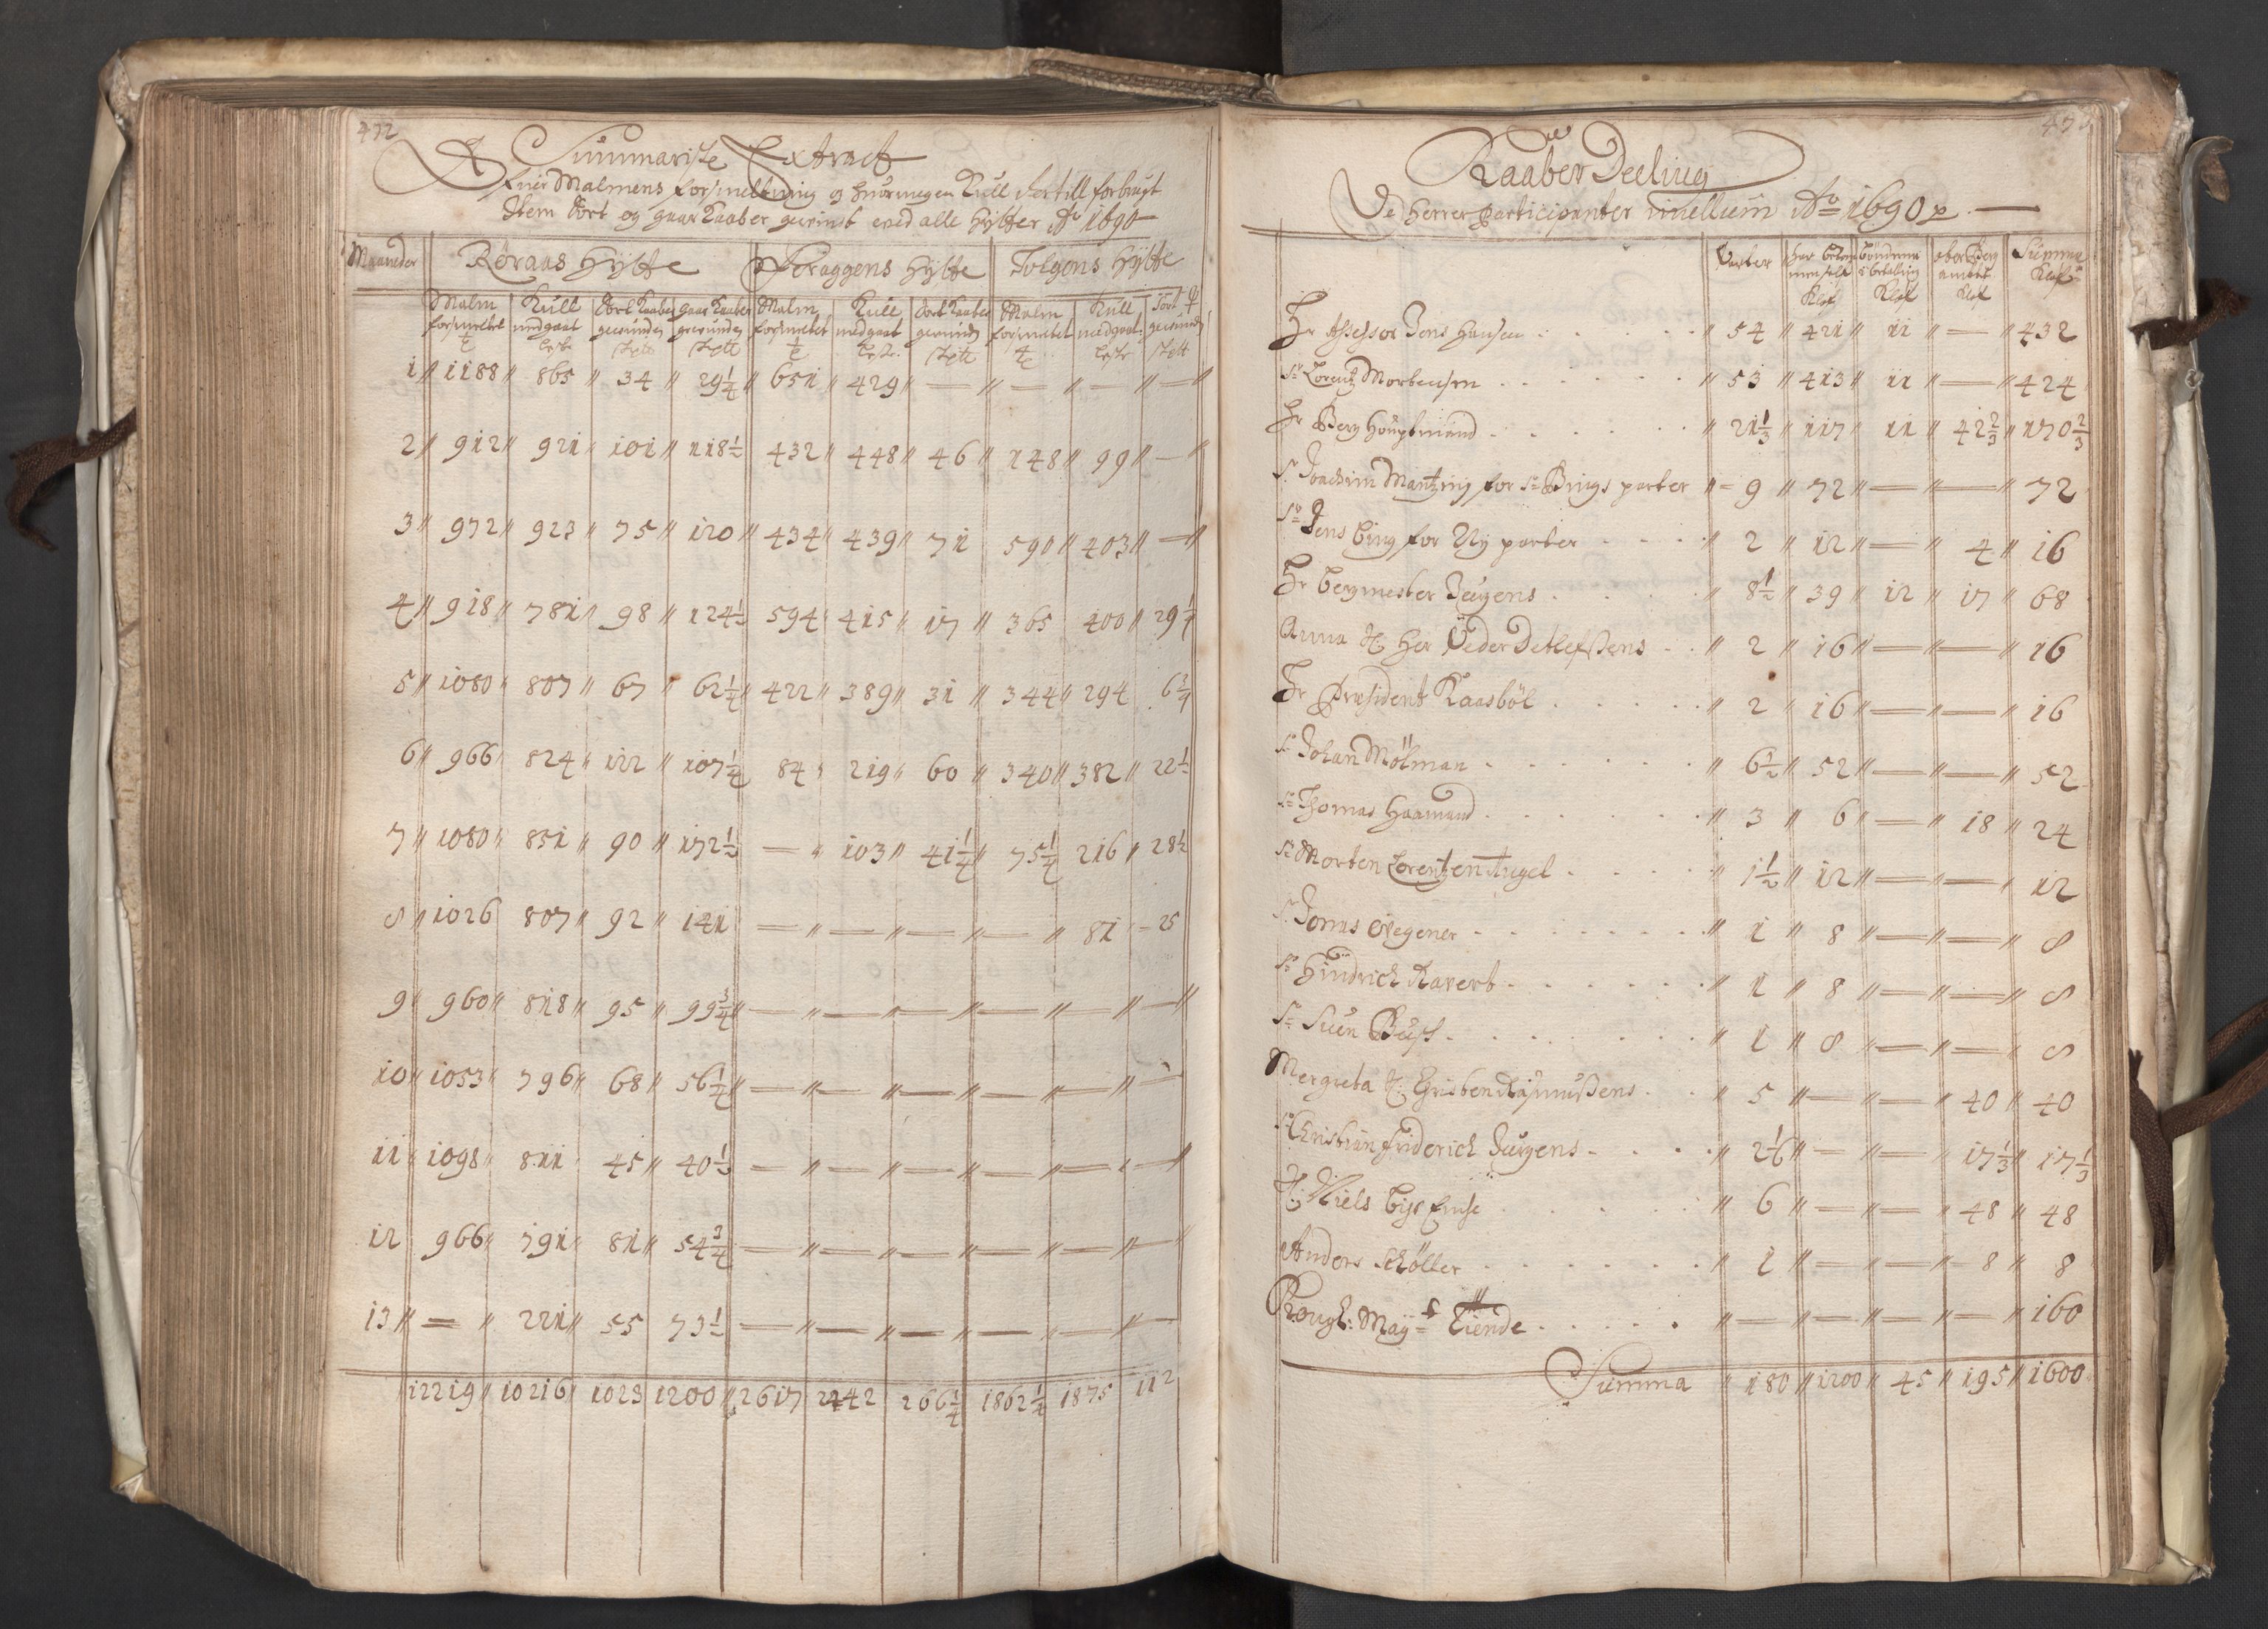 472
Summariske Extract
Afuer Malmens forsmeltning og huormegen Kull dertill forbrugt
Item Sort og gaar Kaaber gevindst ved alle Hÿtter Aº 1690
Maaneder Röraas Hÿtte Draggens Hÿtte Tolgens Hÿtte
Malm forsmeltet Kull medgaat Sort Kaaber gevunden gaar Kaaber gevunden Malm forsmeltet Kull medgaat Sort Kaaber gevunden Malm forsmeltet Kull medgaat Sort ♀ gevunden
1 " 1188 " 865 " 34 " 29¼ " 651 " 429 " — " — " — " — "
2 " 912 " 921 " 101 " 118½ 432 " 448 " 46 " 148 " 99 " — "
3 " 972 " 923 " 75 " 120 " 434 " 439 " 71 590 " 403 " — "
4 " 918 " 781 " 98 " 124½ 594 " 415 " 17 " 365 400 " 29¼
5 " 1080 " 807 " 67 " 62¼ " 422 " 389 " 31 " 344 " 294 6¾
6 " 966 824 " 122 " 107¼ 84 " 219 " 60 " 340 " 382 " 22½
7 " 1080 " 851 " 90 " 172½ — " 103 " 41¼ " 75¼ 216 " 28½
8 " 1026 807 " 92 " 141 — " — " — " — " 81 - 25
9 " 960 " 818 " 95 " 99¾ " — " — " — " — " — " — "
10 " 1053 " 796 " 68 " 56¼ " — " — " — " — " — " —
11 " 1098 " 811 45 " 40½ — " — " — " — " — " — "
12 966 " 791 " 81 " 54¾ — " — " — " — " — " — "
13 " — " 221 " 55 73½ — " — " — " — " — " —
12219 " 10216 " 1023 1200 " 2617 2442 266¼ 1862½ 1875 112
Kaaber Deeling
De Herrer Participanter imellum Aº 1690
Parter i betaling ober Berg ambtet Summa
Hr Assessor Jens Hansen . . . " 54 " 421 " 11 " — " 432
Sr Lorentz Mortensen . . . " 53 " 413 " 11 " — " 424
Hr Berg Houptmand . . . " 21⅓ " 117 " 11 " 42⅔ " 170⅔
Sr Joachim Mantzing for Sr Bings parter " - 9 " 72 " — " — " 72
Sr Jens Bing for Nÿ parter . . . " 2 " 12 " — " 4 " 16
Hr Bergmester Jürgens . . . " 8½ " 39 " 12 " 17 " 68
Anna Sl Her Peder Detlefsens . . " 2 " 16 " — " — " 16
Hr Præsident Kaasböl . . . " 2 " 16 " — " — " 16
Sr Johan Mölman . . . " 6½ " 52 " — " — " 52
Sr Thomas Hammand . . . " 3 " 6 " — " 18 " 24
Sr Morten Lorentzen Angel . . . " 1½ " 12 " — " — " 12
Sr Jonas Wegener . . . " 1 " 8 " — " — " 8
Sr Hindrich Kavert . . . " 1 " 8 " — " — " 8
Sr Suen Busk . . . " 1 " 8 " — " — " 8
Mergreta Sl Christen Rasmussens . . " 5 " — " — " 40 " 40
Sr Christian Friderich Jürgens . . . " 2⅙ " — " — " 17⅓ " 17⅓
Sl Niels . . . " 6 " — " — " 48 " 48
Anders Schöller . . . " 1 " — " — " 8 " 8
Kongl: Mayts Tiende . . . " — " — " — " — " 160
Summa " 180 " 1200 " 45 " 195 " 1600